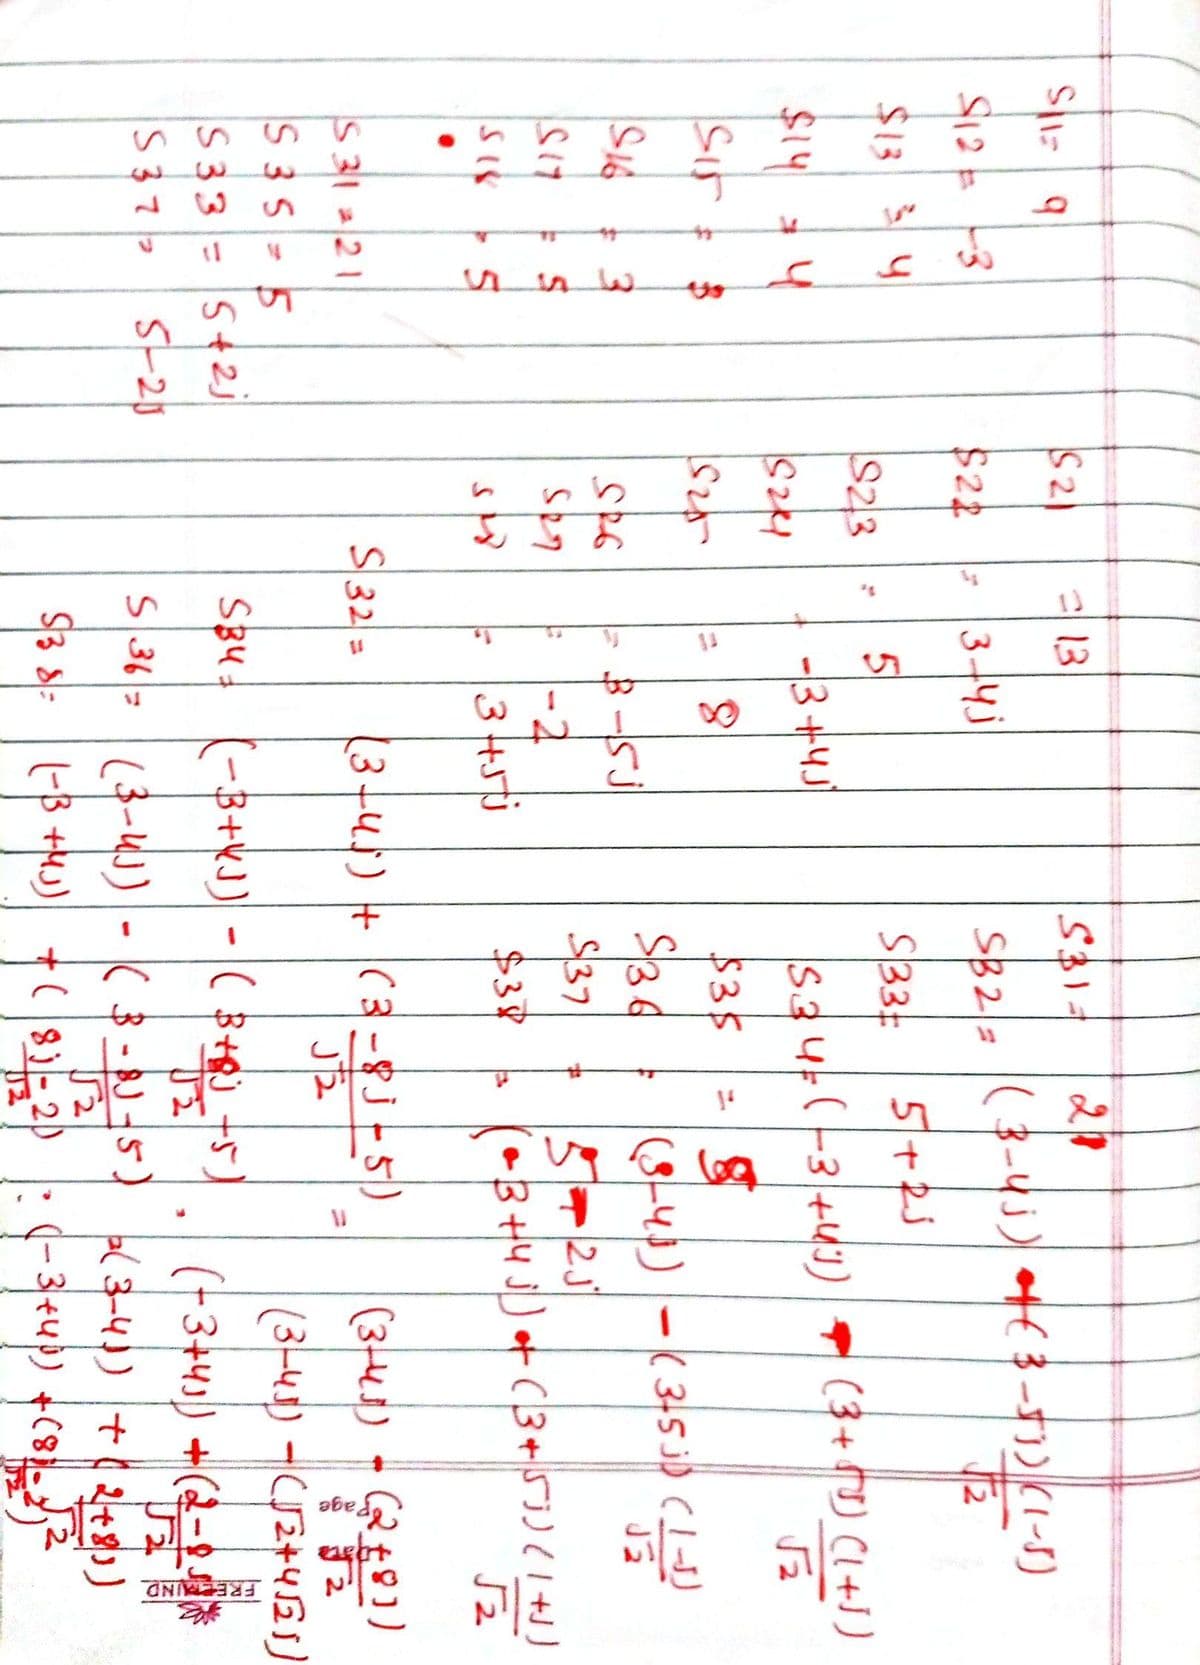 S11= 9 S21 = 13 S31= 21
S12 = -3 S22 = 3-4j S32 = (3-4j) +(3-5j)(1-j)/√2
S13 = 4 S23 = 5 S33= 5+2j
S14 = 4 S24 = -3+4j S34=(-3+4j) + (3+5j)(1+j)/√2
S15 = 3 S25 = 8 S35 =
S16 = 3 S26 = 3-5j S36 = (3-4j) -(3-5j)(1-j)/√2
S17 = 5 S27 = -2 S37 = 5-2j
S18 = 5 S28 = 3+5j S38 = (-3+4j) + (3+5j)(1+j)/√2
S31 = 21 S32 = (3-4j) + (3-8j-5)/√2 = (3-4j) - (2+8j)/√2
S35 = 5 (3-4j) - (√2+4√2j)
S33 = 5+2j S34 = (-3+4j) - (3+8j-5)/√2 = (-3+4j) + (2-8j)/√2
S37 = 5-2j S36 = (3-4j) - (3-8j-5)/√2 =(3-4j) + (2+8j)/√2
S38= (-3+4j) + (8j-2)/√2 = (-3+4j) +(8j-2)/√2
Page
Date
FREEMIND